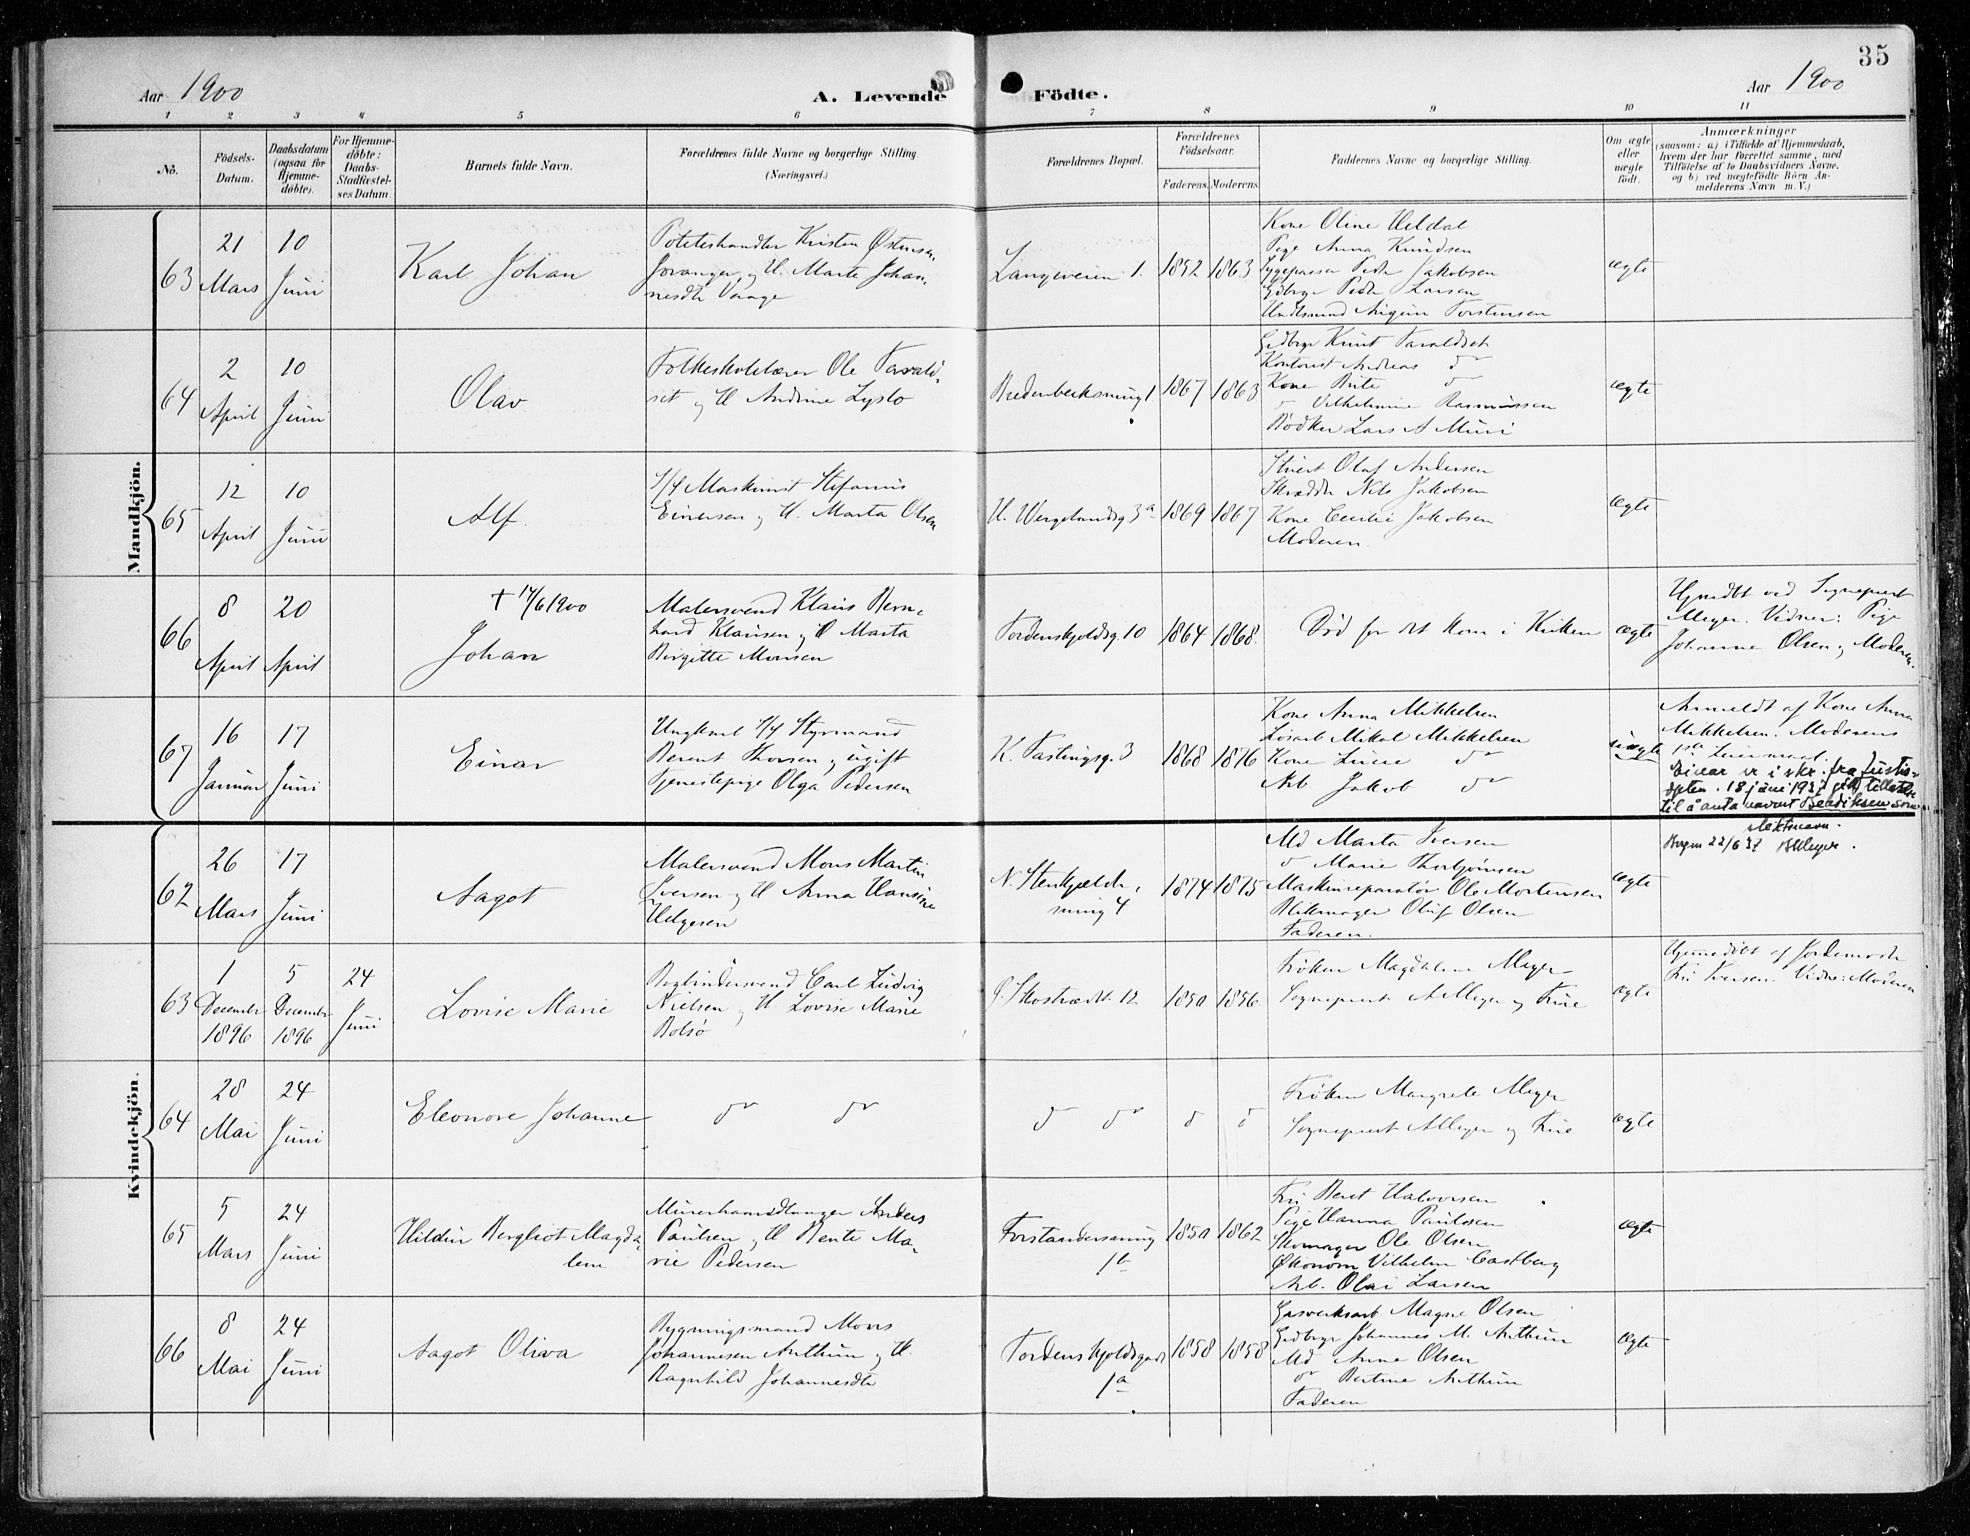 35
Aar 1900
A. Levende Födte.
Aar 1900
1 2 3 4 5 6 7 8 9 10 11
No.
Födsels-Datum.
Daabsdatum (ogsaa for Hjemme-döbte).
For Hjemme-döbte: Daabs-Stadfæstel-ses Datum.
Barnets fulde Navn.
Forældrenes fulde Navne og borgerlige Stilling.
(Næringsvei.)
Forældrenes Bopæl.
Forældrenes Födselsaar.
Faderens. Moderens.
Faddernes Navne og borgerlige Stilling.
Om ægte eller uægte födt.
Anmærkninger
(saasom: a) i Tilfælde af Hjemmedaab,
hvem der har forrettet samme, med
Tilföielse af to Daabsvidners Navne,
og b) ved uægtefödte Börn An-
melderens Navn m. V.)
Mandkjön.
63
21 Mars
10 Juni
Karl Johan
Poteteshandler Kristen Østensen
Joranger og H. Marte Johan-
nesdtr Vaage
Langeveien 1.
1852 1863
Kone Oline Heldal
Pige Anna Knudsen
Sygepasser Peder Jakobsen
Gdbrgr Peder Larsen
Torstensen
ægte
64
2 April
10 Juni
Olav
Folkeskolelærer Ole Taralds-
set og H Andrine Lyslo
Bredenbecksmug 1
1867 1863
Gdbrgr Knut Taraldset
Kontorist Andreas do
Kone Brite do
do Vilhelmine Rasmussen
Bødker Lars A Muri
ægte
65
12 April
10 Juni
Alf.
S/S Maskinist Stefanus
Einersen og H. Marta Olsen
H. Wergelandsg 3a
1869 1867
Stuert Olaf Andersen
Skrædder Nils Jakobsen
Kone Cecilie Jakobsen
Moderen.
ægte
66
8 April
20 April
† 14/6 1900
Johan
Malersvend Klaus Bern-
hard Klausen og H Marta
Birgitte Monsen
Tordenskjoldsg 10
1864 1868.
Død før det kom i Kirken
ægte
Hjmdbt ved Sognepræst
Meyer. Vidner: Pige
Johanne Olsen og Moderen.
67
16 Januar
17 Juni
Einar
Ungkarl S/S Styrmand
Berent Thorsen og ugift
Tjenestepige Olga Pedersen
K. Fastingsg. 3
1868 1876
Kone Anna Mikkelsen
Løsarb Mikal Mikkelsen
Kone Lucie do
Arb Jakob do
uægte
Anmeldt af Kone Anna
Mikkelsen. Moderens
1ste Leiermaal.
Einar er i skr. fra Justis-
dpten. 18 juni 1937 gitt tillatelse
til å anta navnet Bendiksen som
slektsnavn.
Bergen 22/6 37 Meyer.
Kvindekjön.
62
26 Mars
17 Juni
Aagot
Malersvend Mons Martin
Iversen og H Anna Hansine
Helgesen
N. Stenkjelder-
smug 4
1874 1875
Md Marta Iversen
do Marie Thorbjørnsen
Maskinreparatør Ole Mortensen
Blikmager Oluf Olsen
Faderen.
ægte
63
1 December 1896
5 December 1896
24 Juni
Lovise Marie
Bogbindersvend Carl Ludvig
Nielsen og H. Lovise Marie
Bolsø
Skostrædt. 12
1850 1856
Frøken Magdalena Meyer
Sognepræst A Meyer og Frue
ægte
Hjemmedøbt af Jordemoder
Fru Iversen. Vidne: Moderen
64
28 Mai
24 Juni
Eleonore Johanne
do do
do do
do do
Frøken Margrete Meyer
Sognepræst A Meyer og Frue
ægte
65
5 Mars
24 Juni
Hildur Bergliot Magda-
lene
Murerhaandlanger Anders
Paulsen og H Bente Ma-
rie Pedersen
Forstandersmug
1b
1850 1862
Fru Beret Halvorsen
Pige Hanna Paulsen
Skomager Ole Olsen
Økonom Vilhelm Castberg
Arb. Olai Larsen
ægte
66
8 Mai
24 Juni
Aagot Oliva
Bygningsmand Mons
Johannesen Arthun og H.
Ragnhild Johannesdtr
Tordenskjoldsgade
1a
1858 1858
Gasverksarb Magne Olsen
Gdbrgr Johannes M. Arthun
Md Anna Olsen
do Bertine Arthun
Faderen
ægte